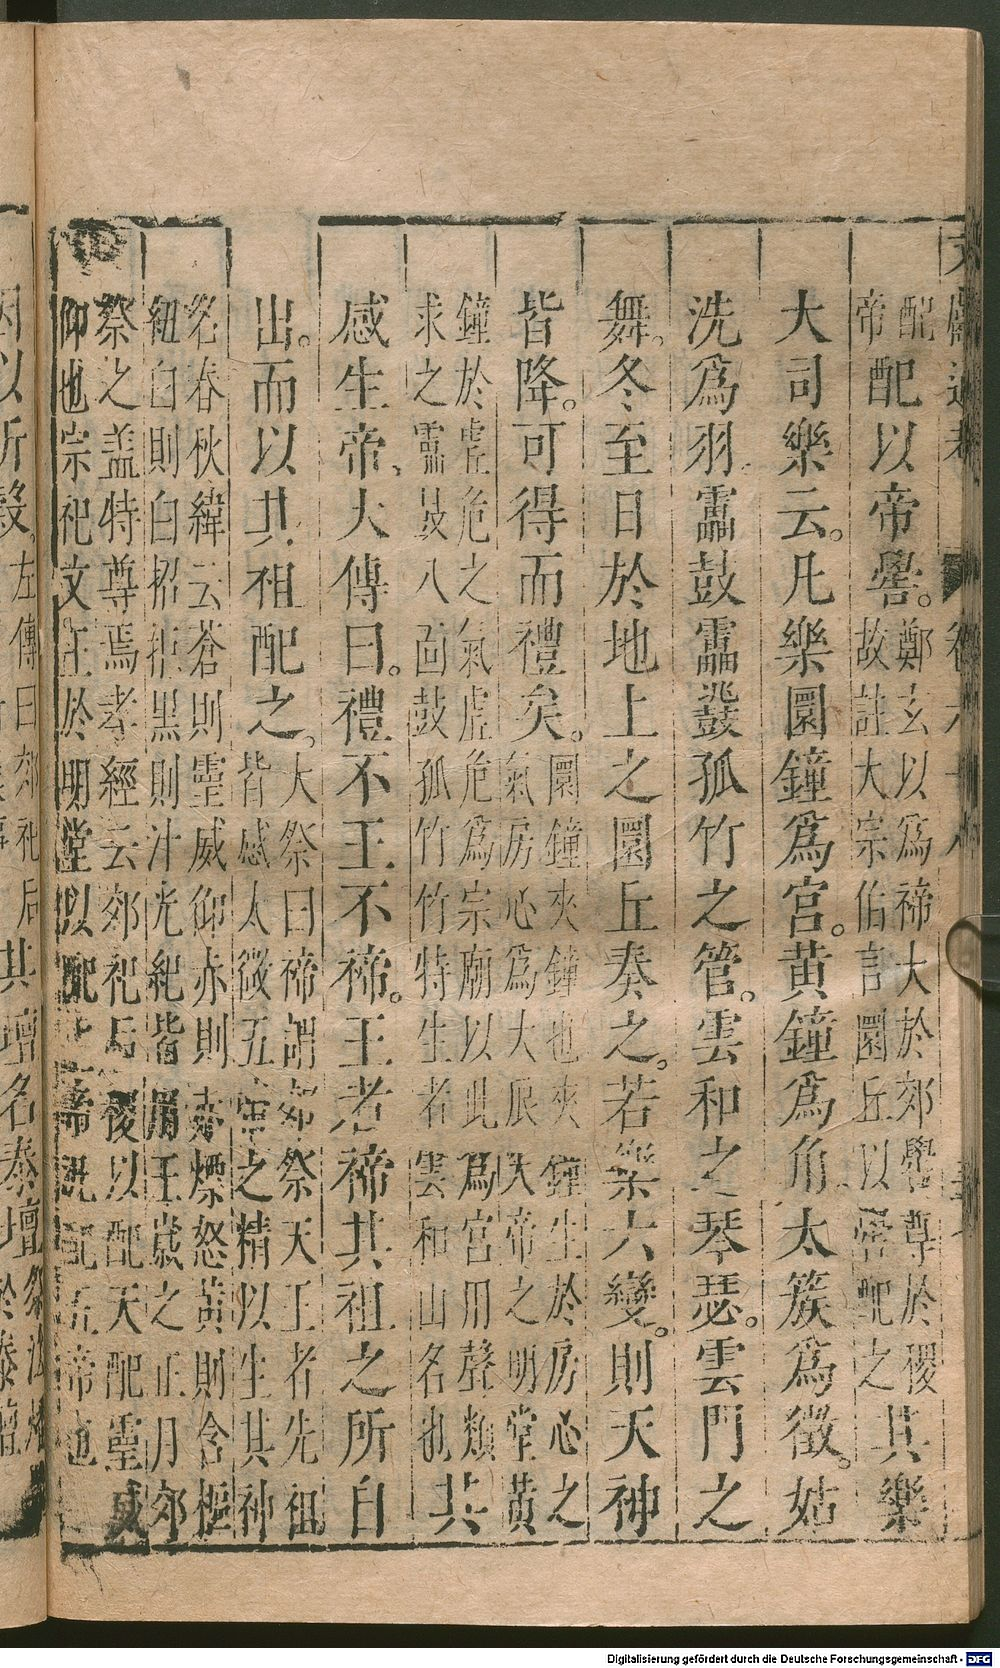 文獻通考
配
帝
配以帝嚳。
鄭玄以爲禘大於郊嚳尊於稷
故註大宗伯言圜丘以嚳配之
其樂
大司樂云。凡樂圜鐘爲宮。黃鐘爲角太簇爲徵。姑
洗爲羽靁鼓靁鼗孤竹之管。雲和之琴瑟。雲門之
舞。冬至日於地上之圜丘奏之。若樂六變。則天神
皆降。可得而禮矣。
圜鐘夾鐘也夾鐘生於房心之
氣房心爲大辰天帝之明堂黃
鐘於虛危之氣虛危爲宗廟以此爲宮用聲類
求之靁鼓八面鼓孤竹竹特生者雲和山名也
其
感生帝、大傳曰。禮不王不禘。王者禘其祖之所自
出。而以其祖配之。
大祭曰禘謂郊祭天王者先祖
皆感太微五帝之精以生其神
名春秋緯云蒼則靈威仰赤則赤熛怒黃則含樞
紐白則白招拒黑則汁光紀皆用王歲之正月郊
祭之蓋特尊焉孝經云郊祀后稷以配天配靈威
仰也宗祀文王於明堂以配上帝汎配五帝也
因以所
左傳曰郊祀后
其壇名泰壇
於泰壇
Digitalisierung gefördert durch die Deutsche Forschungsgemeinschaft - DFG